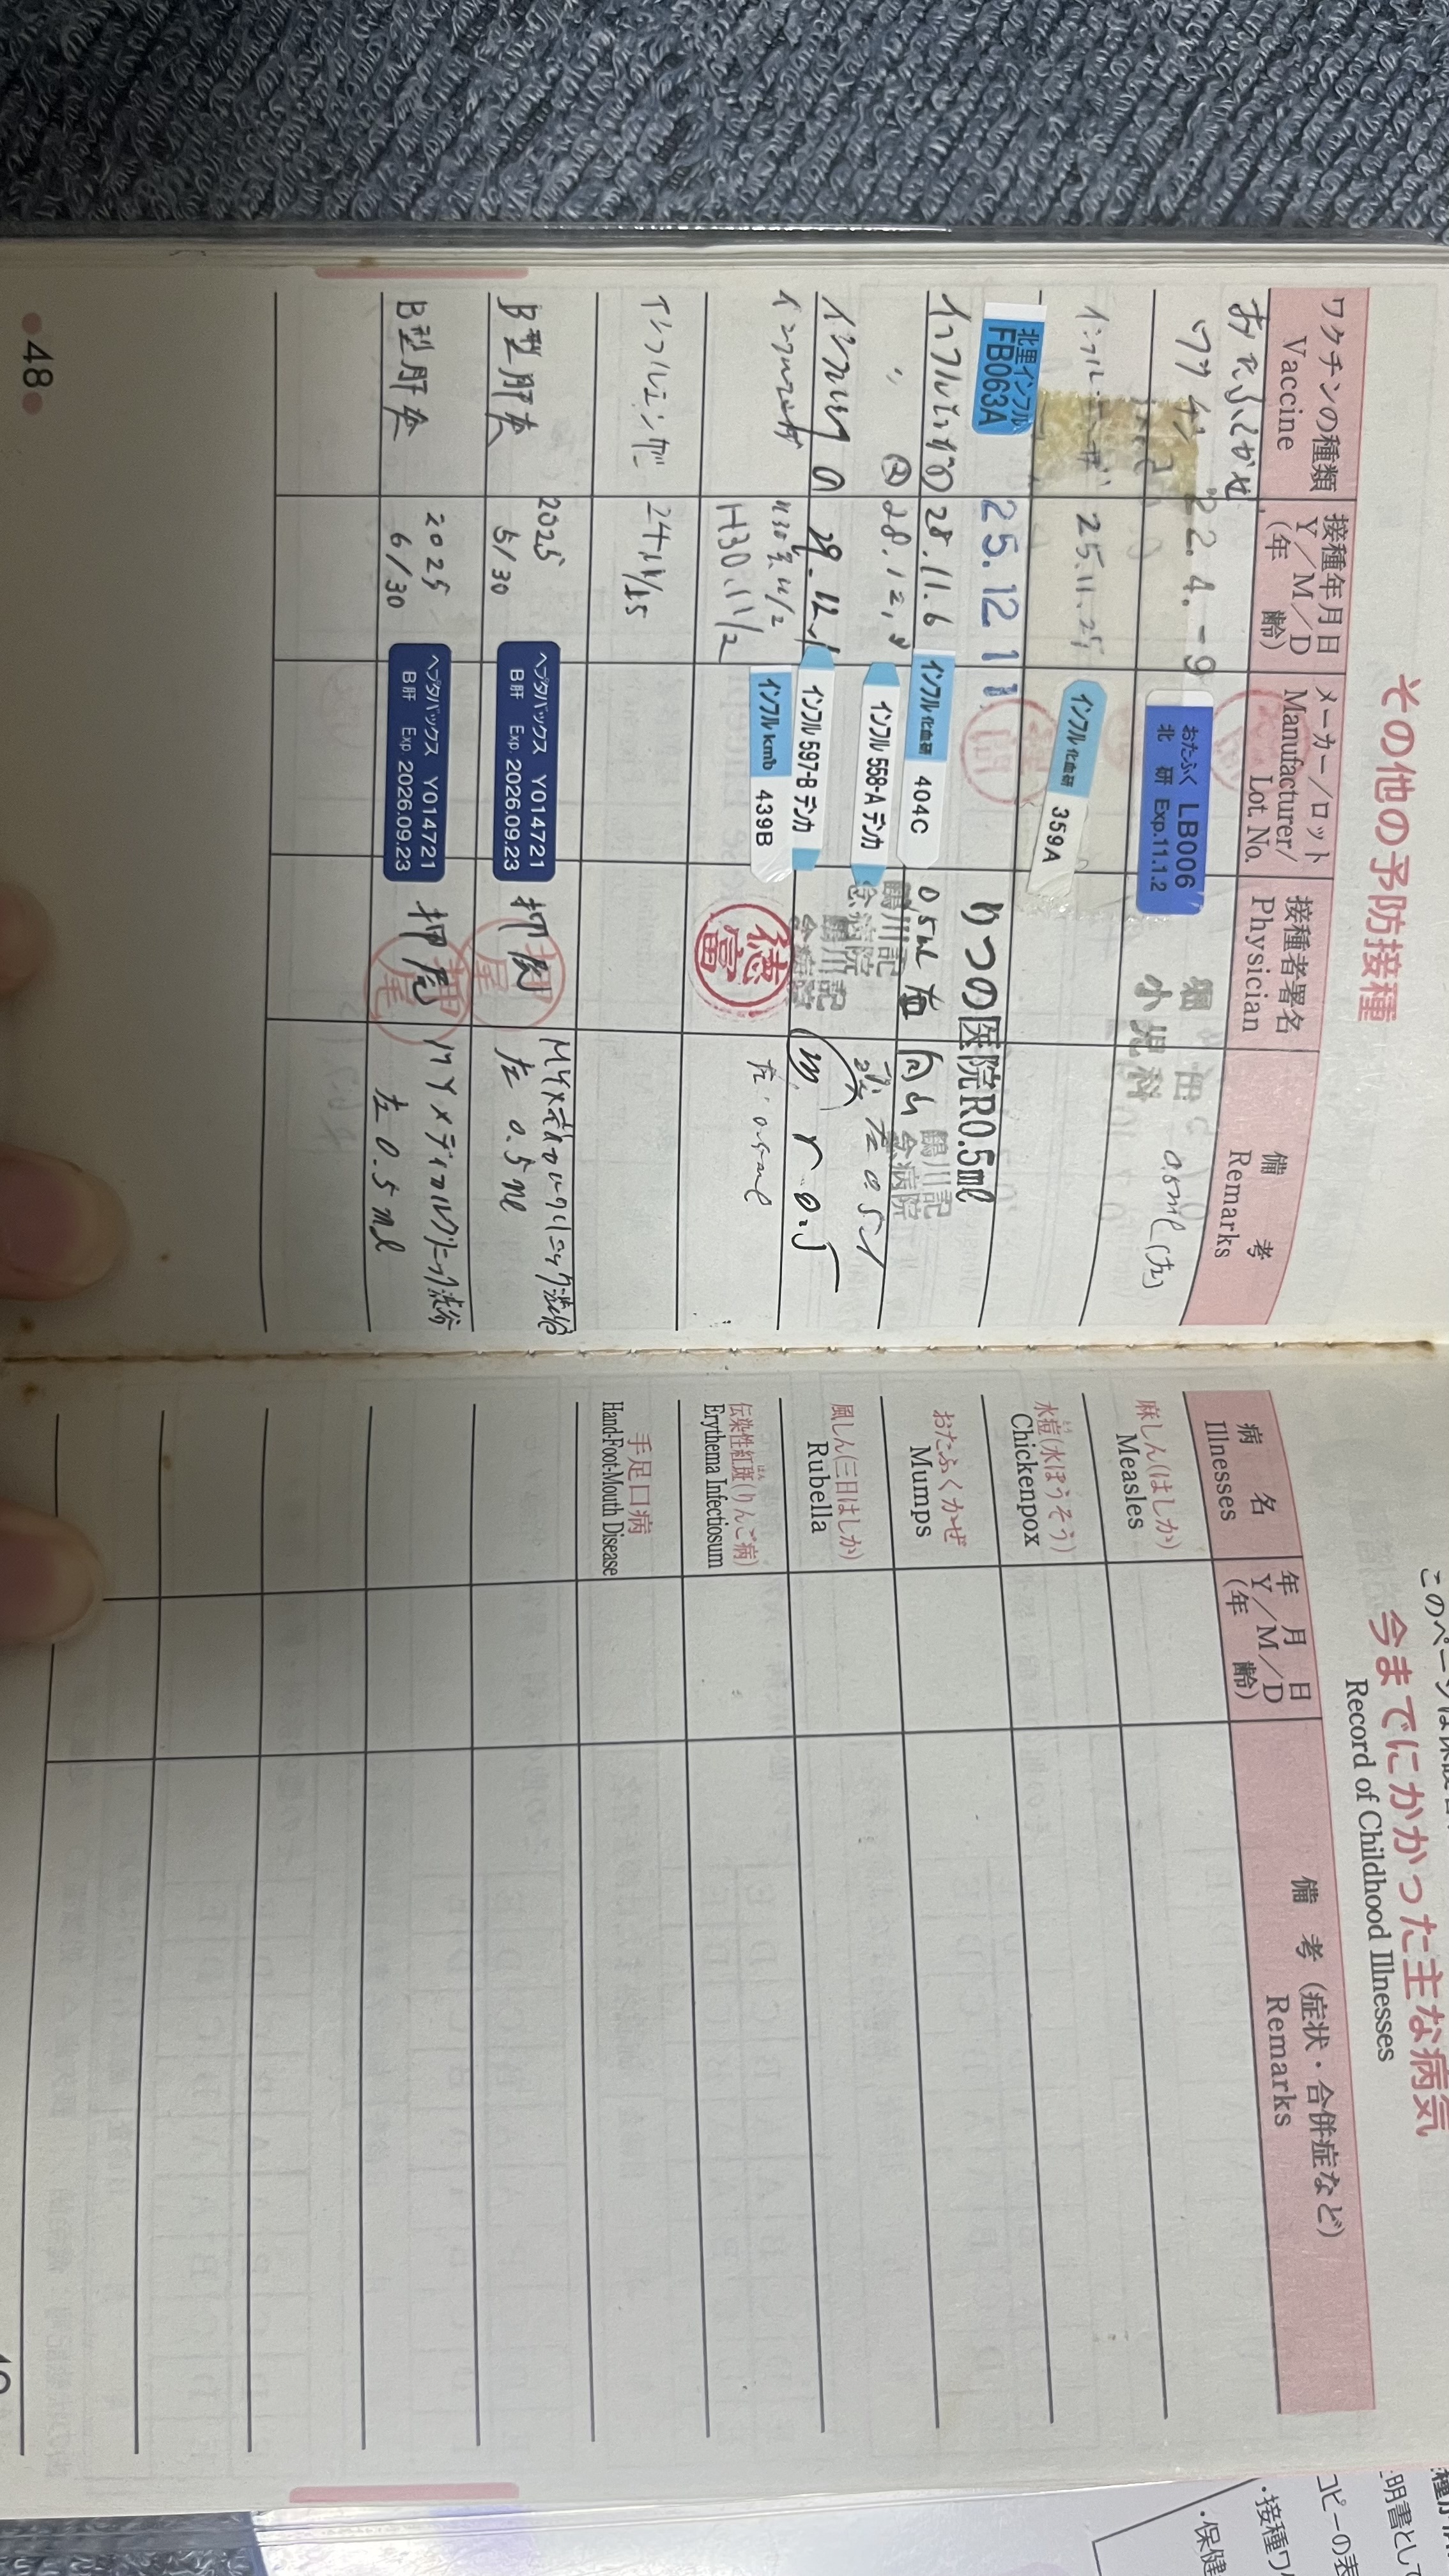 その他の予防接種
ワクチンの種類
Vaccine
接種年月日
Y/M/D
(年 齢)
メーカー/ロット
Manufacturer/
Lot No.
接種者署名
Physician
備 考
Remarks
おたふくかぜ
ワクチン
22.4.-9
おたふく LB006
北 研 Exp.11.1.2
小児科
0.5ml(左)
25.11.25
インフル 化血研 359A
北里インフル
FB063A
25.12 11
りつの医院R0.5ml
28.11.6
インフル 化血研 404C
0.5ml
鶴川記
念病院
〃 ②
28.12.
インフル 558-A デンカ
鶴川記
念病院
左 0.5
29.12.1
インフル 597-B デンカ
鶴川記
念病院
r 0.5
H30.11/2
H30.11/2
インフル kmb 439B
徳富
左 0.5ml
インフルエンザ
24 11/25
B型肝炎
2025
5/30
ヘプタバックス Y014721
B肝 Exp. 2026.09.23
押尾
MYメディカルクリニック渋谷
左 0.5ml
B型肝炎
2025
6/30
ヘプタバックス Y014721
B肝 Exp. 2026.09.23
押尾
MYメディカルクリニック渋谷
左 0.5ml
48
このページは
今までにかかった主な病気
Record of Childhood Illnesses
病 名
Illnesses
年 月 日
Y/M/D
(年 齢)
備 考 (症状・合併症など)
Remarks
麻しん(はしか)
Measles
水痘(水ぼうそう)
Chickenpox
おたふくかぜ
Mumps
風しん(三日はしか)
Rubella
伝染性紅斑(りんご病)
Erythema Infectiosum
手足口病
Hand-Foot-Mouth Disease
明書として
コピーの表
・接種ワ
・保健